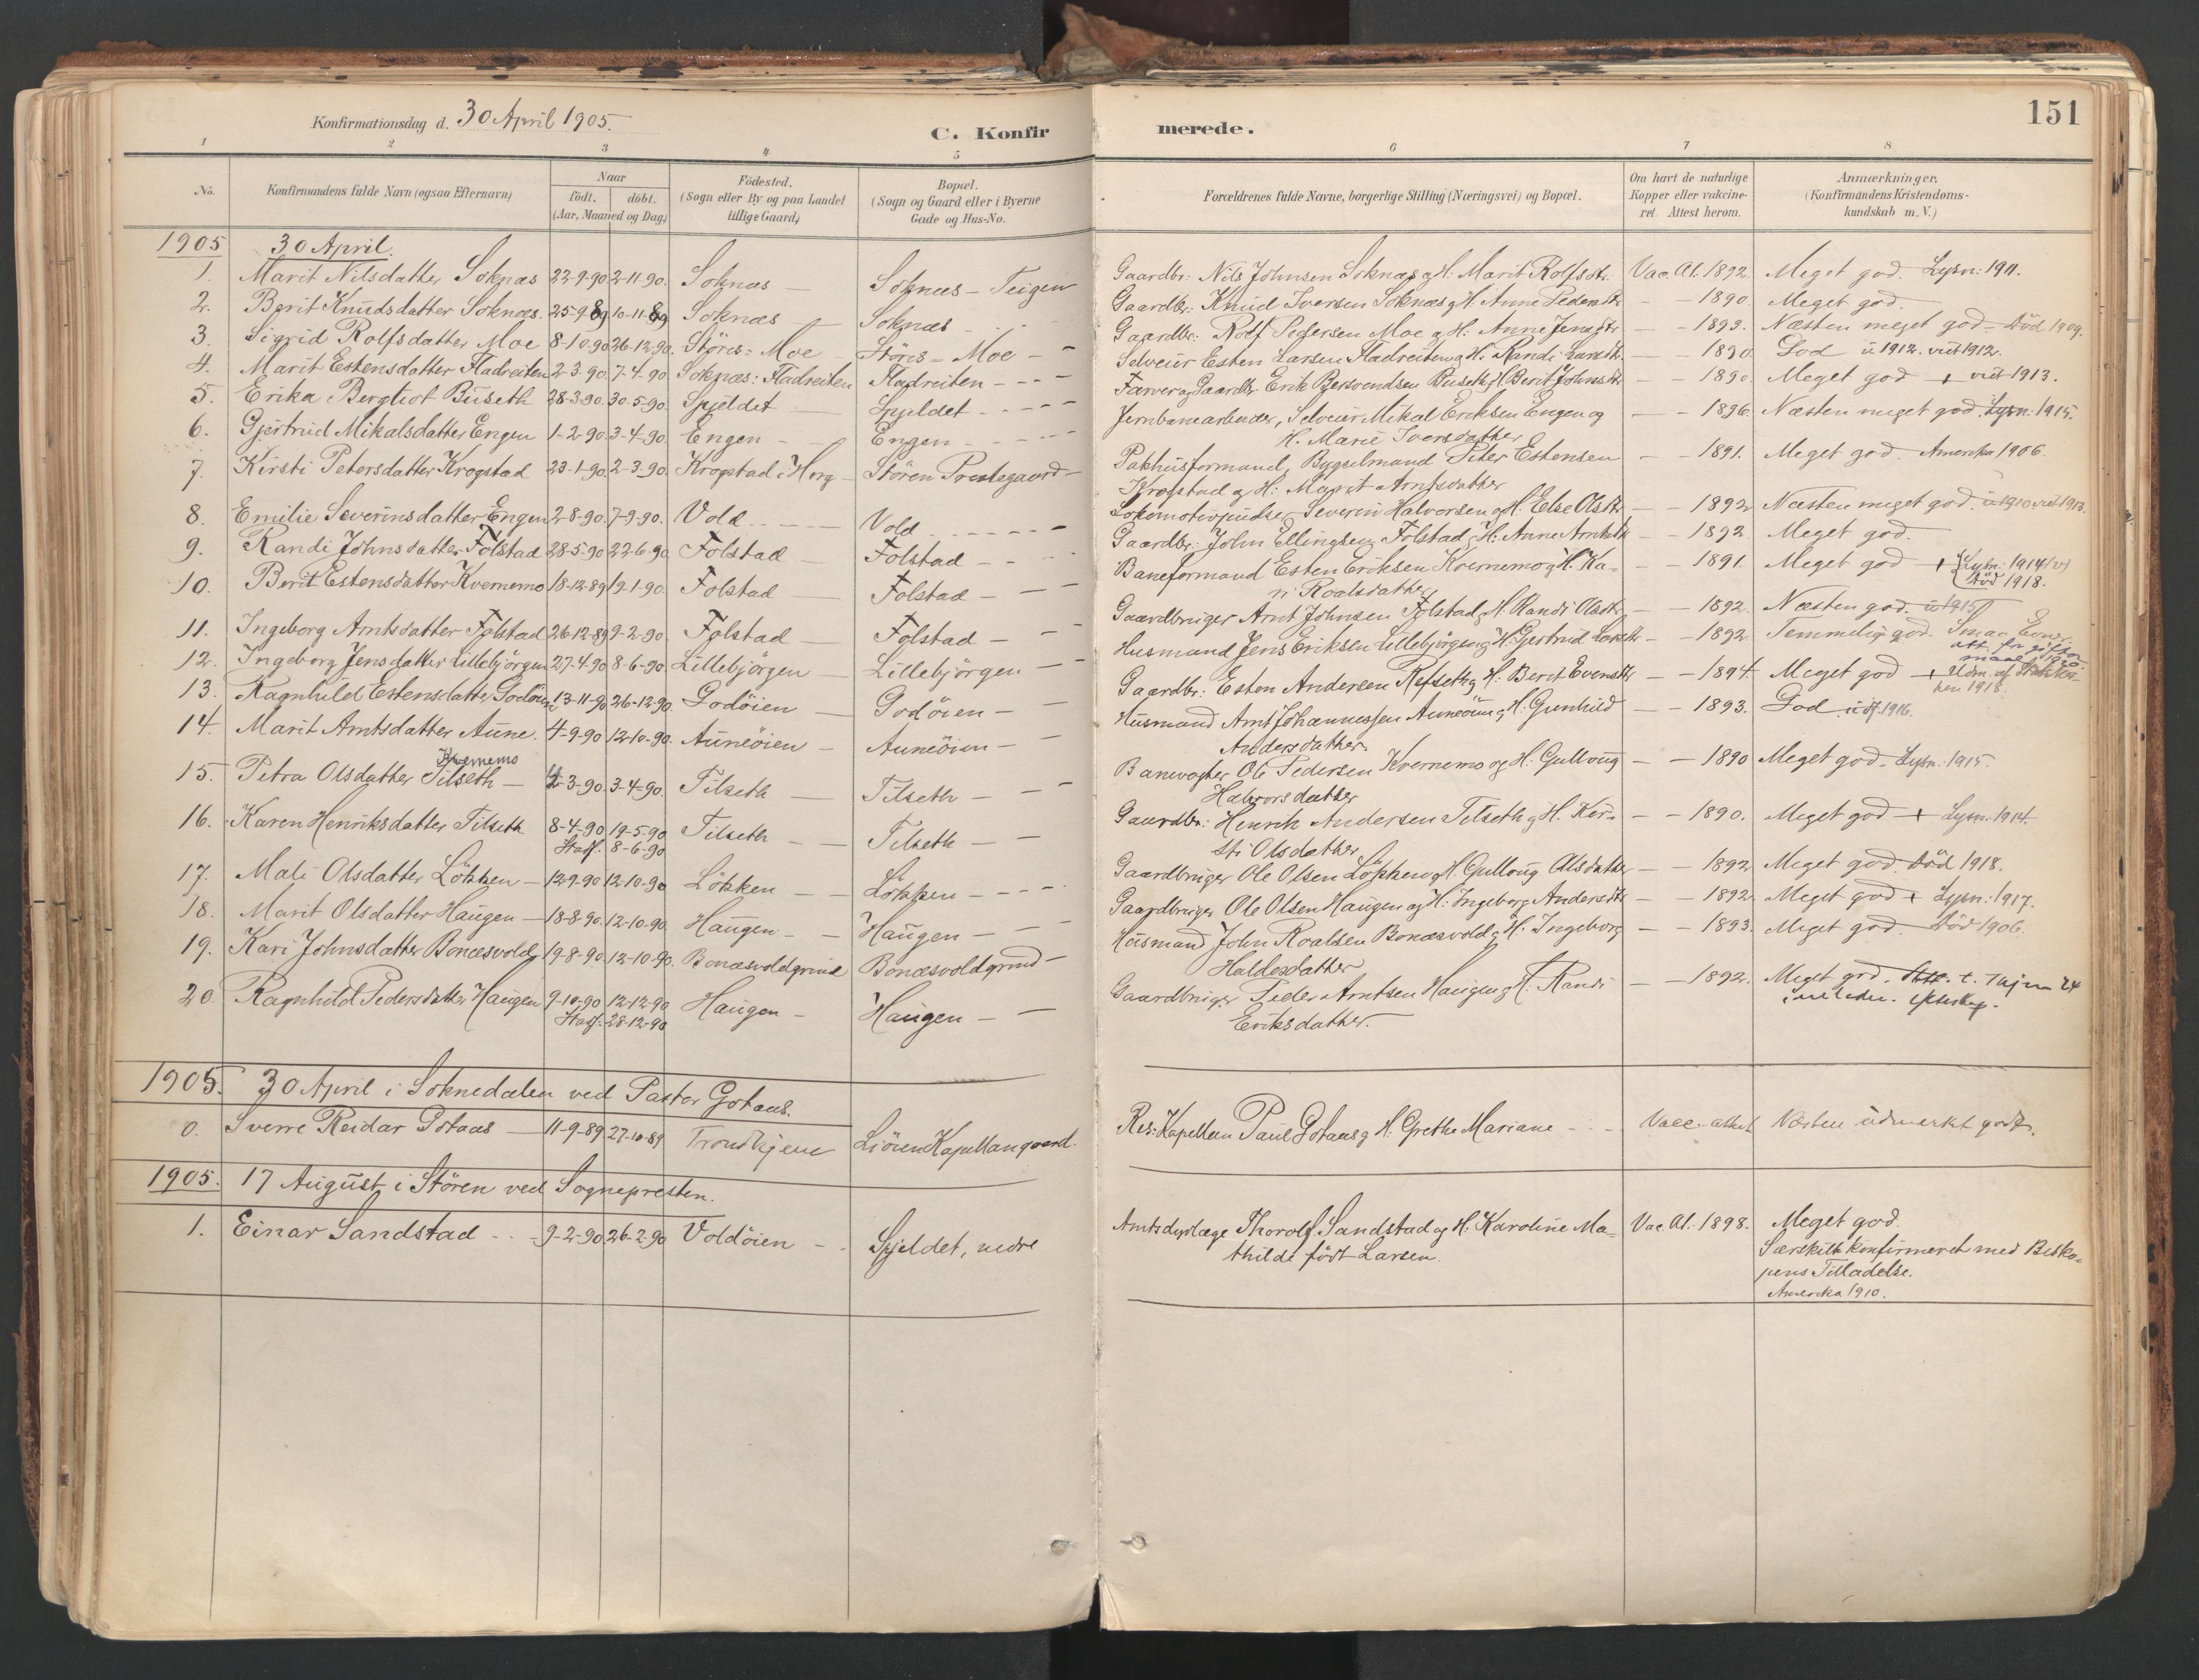 Konfirmationsdag d. 30 April 1905.
C. Konfir
merede.
151
1 2 3 4 5 6 7 8
No. Konfirmandens fulde Navn (ogsaa Efternavn) Naar födt. döbt. (Aar, Maaned og Dag) Födested. (Sogn eller By og paa Landet tillige Gaard) Bopæl. (Sogn og Gaard eller i Byerne Gade og Hus-No. Forældrenes fulde Navne, borgerlige Stilling (Næringsvei) og Bopæl. Om havt de naturlige Kopper eller vakcineret Attest herom. Anmærkninger. (Konfirmandens Kristendomskundskab m. V.)
1905 30 April.
1. Marit Nilsdatter Soknæs 22-9-90 2-11-90. Soknæs — Soknæs – Teigen Gaardbr: Nils Johnsen Soknæs og H. Marit Rolfsdtr. Vac. At. 1892. Meget god. Lysn: 1911.
2. Berit Knudsdatter Soknæs. 25-9-89 10-11-89 Soknæs Soknæs Gaardbr: Knud Iversen Soknæs og H. Anne Pedersdtr — - 1890. Meget god.
3. Sigrid Rolfsdatter Moe 8-10-90 26-12-90. Störes= Moe Störes= Moe — Gaardbr: Rolf Pedersen Moe og H: Anne Jensdtr — - 1893. Næsten meget god — död 1909.
4. Marit Estensdatter Fladreiten 2-3-90 7-4-90 Soknæs: Fladreiten Fladreiten Selveier Esten Larsen Fladreiten og H: Randi Larsdtr. — - 1890. God u 1912. vut 1912.
5. Erika Bergliot Buseth 28-3-90. 30-5-90. Spjeldet Spjeldet Farver og Gaardbr. Erik Bersvendsen Buseth og H. Berit Johnsdtr — - 1890. Meget god + vut 1913.
6. Gjertrud Mikalsdatter Engen 1-2-90 3-4-90. Engen Engen Jernbanearbeider, Selveier Mikal Eriksen Engen og — - 1896. Næsten meget god. Lysn. 1915.
H. Marie Iversdatter
7. Kirsti Petersdatter Krogstad 23-1-90. 2-3-90. Krogstad i Horg Stören Prestegaard — Pakhusformand, Bygselmand Peter Estensen — - 1891. Meget god. Amerika 1906.
Krogstad og H: Marit Arntsdatter
8. Emilie Severinsdatter Engen 2-8-90. 7-9-90. Vold Vold Lokomotivpudser Severin Halvorsen og H. Else Olsdtr — - 1892 Næsten meget god.
9. Randi Johnsdatter Folstad 28-5-90 22-6-90 Folstad Folstad Gaardbr: John Ellingsen Folstad og H: Anne Arntsdtr — - 1892. Meget god.
10. Berit Estensdatter Kvernemo 18-12-89 19-1-90. Folstad Folstad Baneformand Esten Eriksen Kvernemo og H. Ka= — - 1891. Meget god + Lysn: 1914
ri Roalsdatter död 1918.
11. Ingeborg Arntsdatter Folstad 26-12-89 9-2-90 Folstad Folstad Gaardbruger Arnt Johnsen Folstad og H. Randi Olsdtr — - 1892. Næsten god. u 1915
12. Ingeborg Jensdatter Lillebjörgen 27-4-90 8-6-90 Lillebjörgen Lillebjörgen Husmand Jens Eriksen Lillebjörgen og H. Gjertrud Larsdtr — - 1892. Temmelig god.
att. for gifter
maal 1920.
13. Ragnhild Estensdatter Godöien 13-11-90 26-12-90. Godöien Godöien Gaardbr: Esten Andersen Refseth og H: Berit Evensdtr — - 1894. Meget god + Udm. af Statskir-
ken 1918.
14. Marit Arntsdatter Aune. 4-9-90 12-10-90. Auneöien Auneöien Husmand Arnt Johannessen Auneöien og H. Gunhild — - 1893. God. 1916.
Andersdatter.
Kvernemo
15. Petra Olsdatter Tilseth 2-3-90. 3-4-90. Tilseth Tilseth Banevogter Ole Pedersen Kvernemo og H. Gulloug — - 1890 Meget god. Lysn. 1915.
Halvorsdatter
16. Karen Henriksdatter Tilseth 8-4-90 19-5-90 Tilseth Tilseth Gaardbr: Henrik Andersen Tilseth og H. Kir= — - 1890. Meget god + Lysn. 1914.
Stadf. 8-6-90 sti Olsdatter
17. Mali Olsdatter Lökken 12-9-90 12-10-90 Lökken Lökken Gaardbruger Ole Olsen Lökken og H. Gulloug Olsdatter — - 1892 Meget god. död 1918.
18. Marit Olsdatter Haugen 18-8-90. 12-10-90. Haugen Haugen Gaardbruger Ole Olsen Haugen og H: Ingeborg Andersdtr — - 1892. Meget god + Lysn: 1917.
19. Kari Johnsdatter Bonæsvold 19-8-90. 12-10-90. Bonæsvoldgrind Bonæsvoldgrind Husmand John Roalsen Bonæsvold og H. Ingeborg — - 1893. Meget god. död 1906.
Haldosdatter
20. Ragnhild Pedersdatter Haugen 9-10-90 12-12-90 Haugen Haugen Gaardbruger Peder Arntsen Haugen og H. Randi — - 1892. Meget god.
Stadf. 28-12-90 Eriksdatter.
1905. 30 April i Soknedalen ved Pastor Gotaas.
0. Sverre Reidar Gotaas 11-9-89 27-10-89 Trondhjem Liöien Kapellangaard. Res: Kapellan Paul Gotaas og H. Grethe Mariane Vacc. attest Næsten udmerket godt.
1905. 17 August i Stören ved Sognepresten.
1. Einar Sandstad 9-2-90 26-2-90 Voldöien Spjeldet, nedre Amtsdyrlæge Thorolf Sandstad og H. Karoline Ma= Vac. At. 1898. Meget god.
thilde födt Larsen. Særskilt konfirmeret med Bisko=
pens Tilladelse.
Amerika 1910.